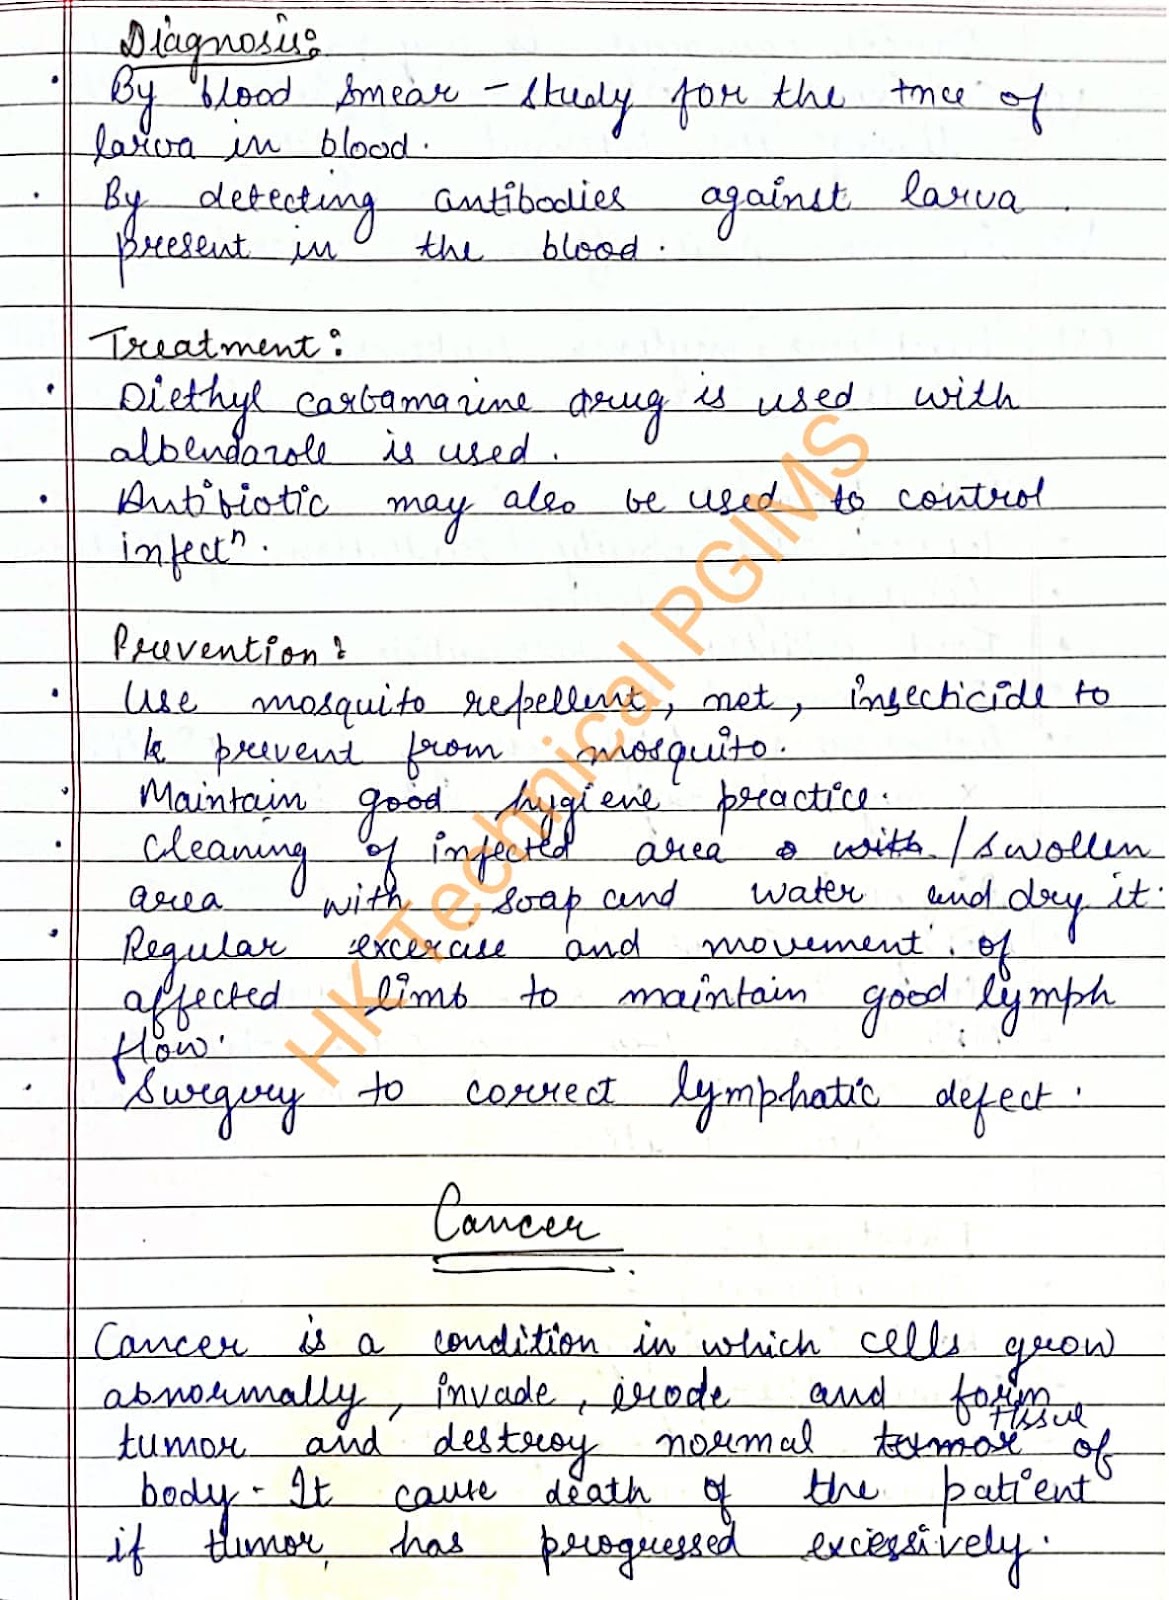 Diagnosis:
• By blood smear - study for the +nce of
larva in blood.
• By detecting antibodies against larva
present in the blood.
Treatment:
• Diethyl carbamazine drug is used with
albendazole is used.
• Antibiotic may also be used to control
infectⁿ.
Prevention:
• Use mosquito repellent, net, insecticide to
prevent from mosquito.
• Maintain good hygiene practice.
• Cleaning of infected area with / swollen
area with soap and water and dry it.
• Regular excercise and movement of
affected limb to maintain good lymph
flow.
• Surgery to correct lymphatic defect.
Cancer
Cancer is a condition in which cells grow
abnormally, invade, erode and form
tissue
tumor and destroy normal tumor of
body - It cause death of the patient
if tumor has progressed excessively.
HK Technical PGIMS